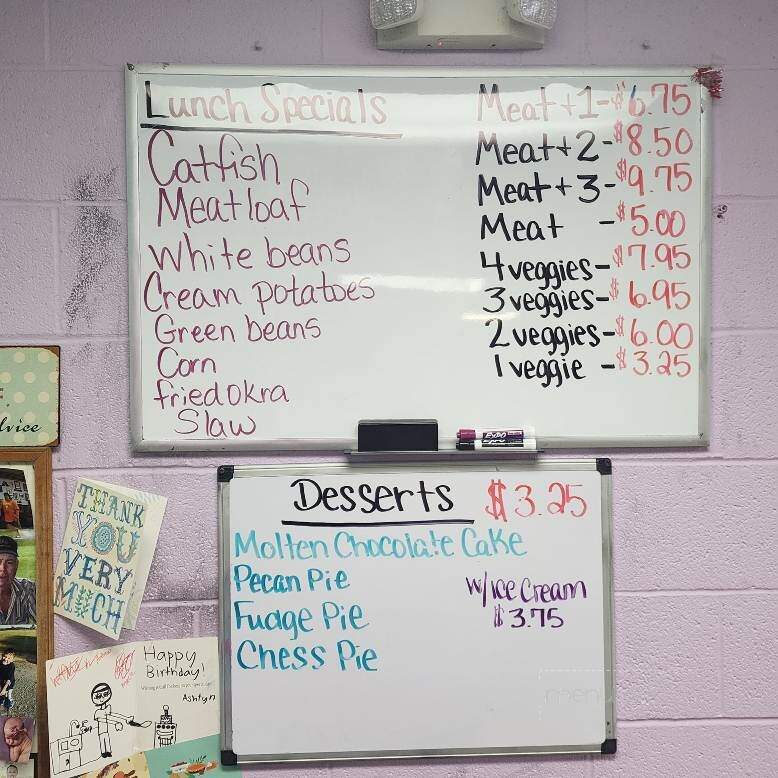 Lunch Specials
Catfish
Meatloaf
White beans
Cream potatoes
Green beans
Corn
fried okra
Slaw
Meat + 1 - $6.75
Meat + 2 - $8.50
Meat + 3 - $9.75
Meat - $5.00
4 veggies - $7.95
3 veggies - $6.95
2 veggies - $6.00
1 veggie - $3.25
EXPO
Desserts $3.25
Molten Chocolate Cake
Pecan Pie
Fudge Pie
Chess Pie
w/ice Cream
$3.75
THANK
YOU
VERY
MUCH
Happy
Birthday!
Ashtyn